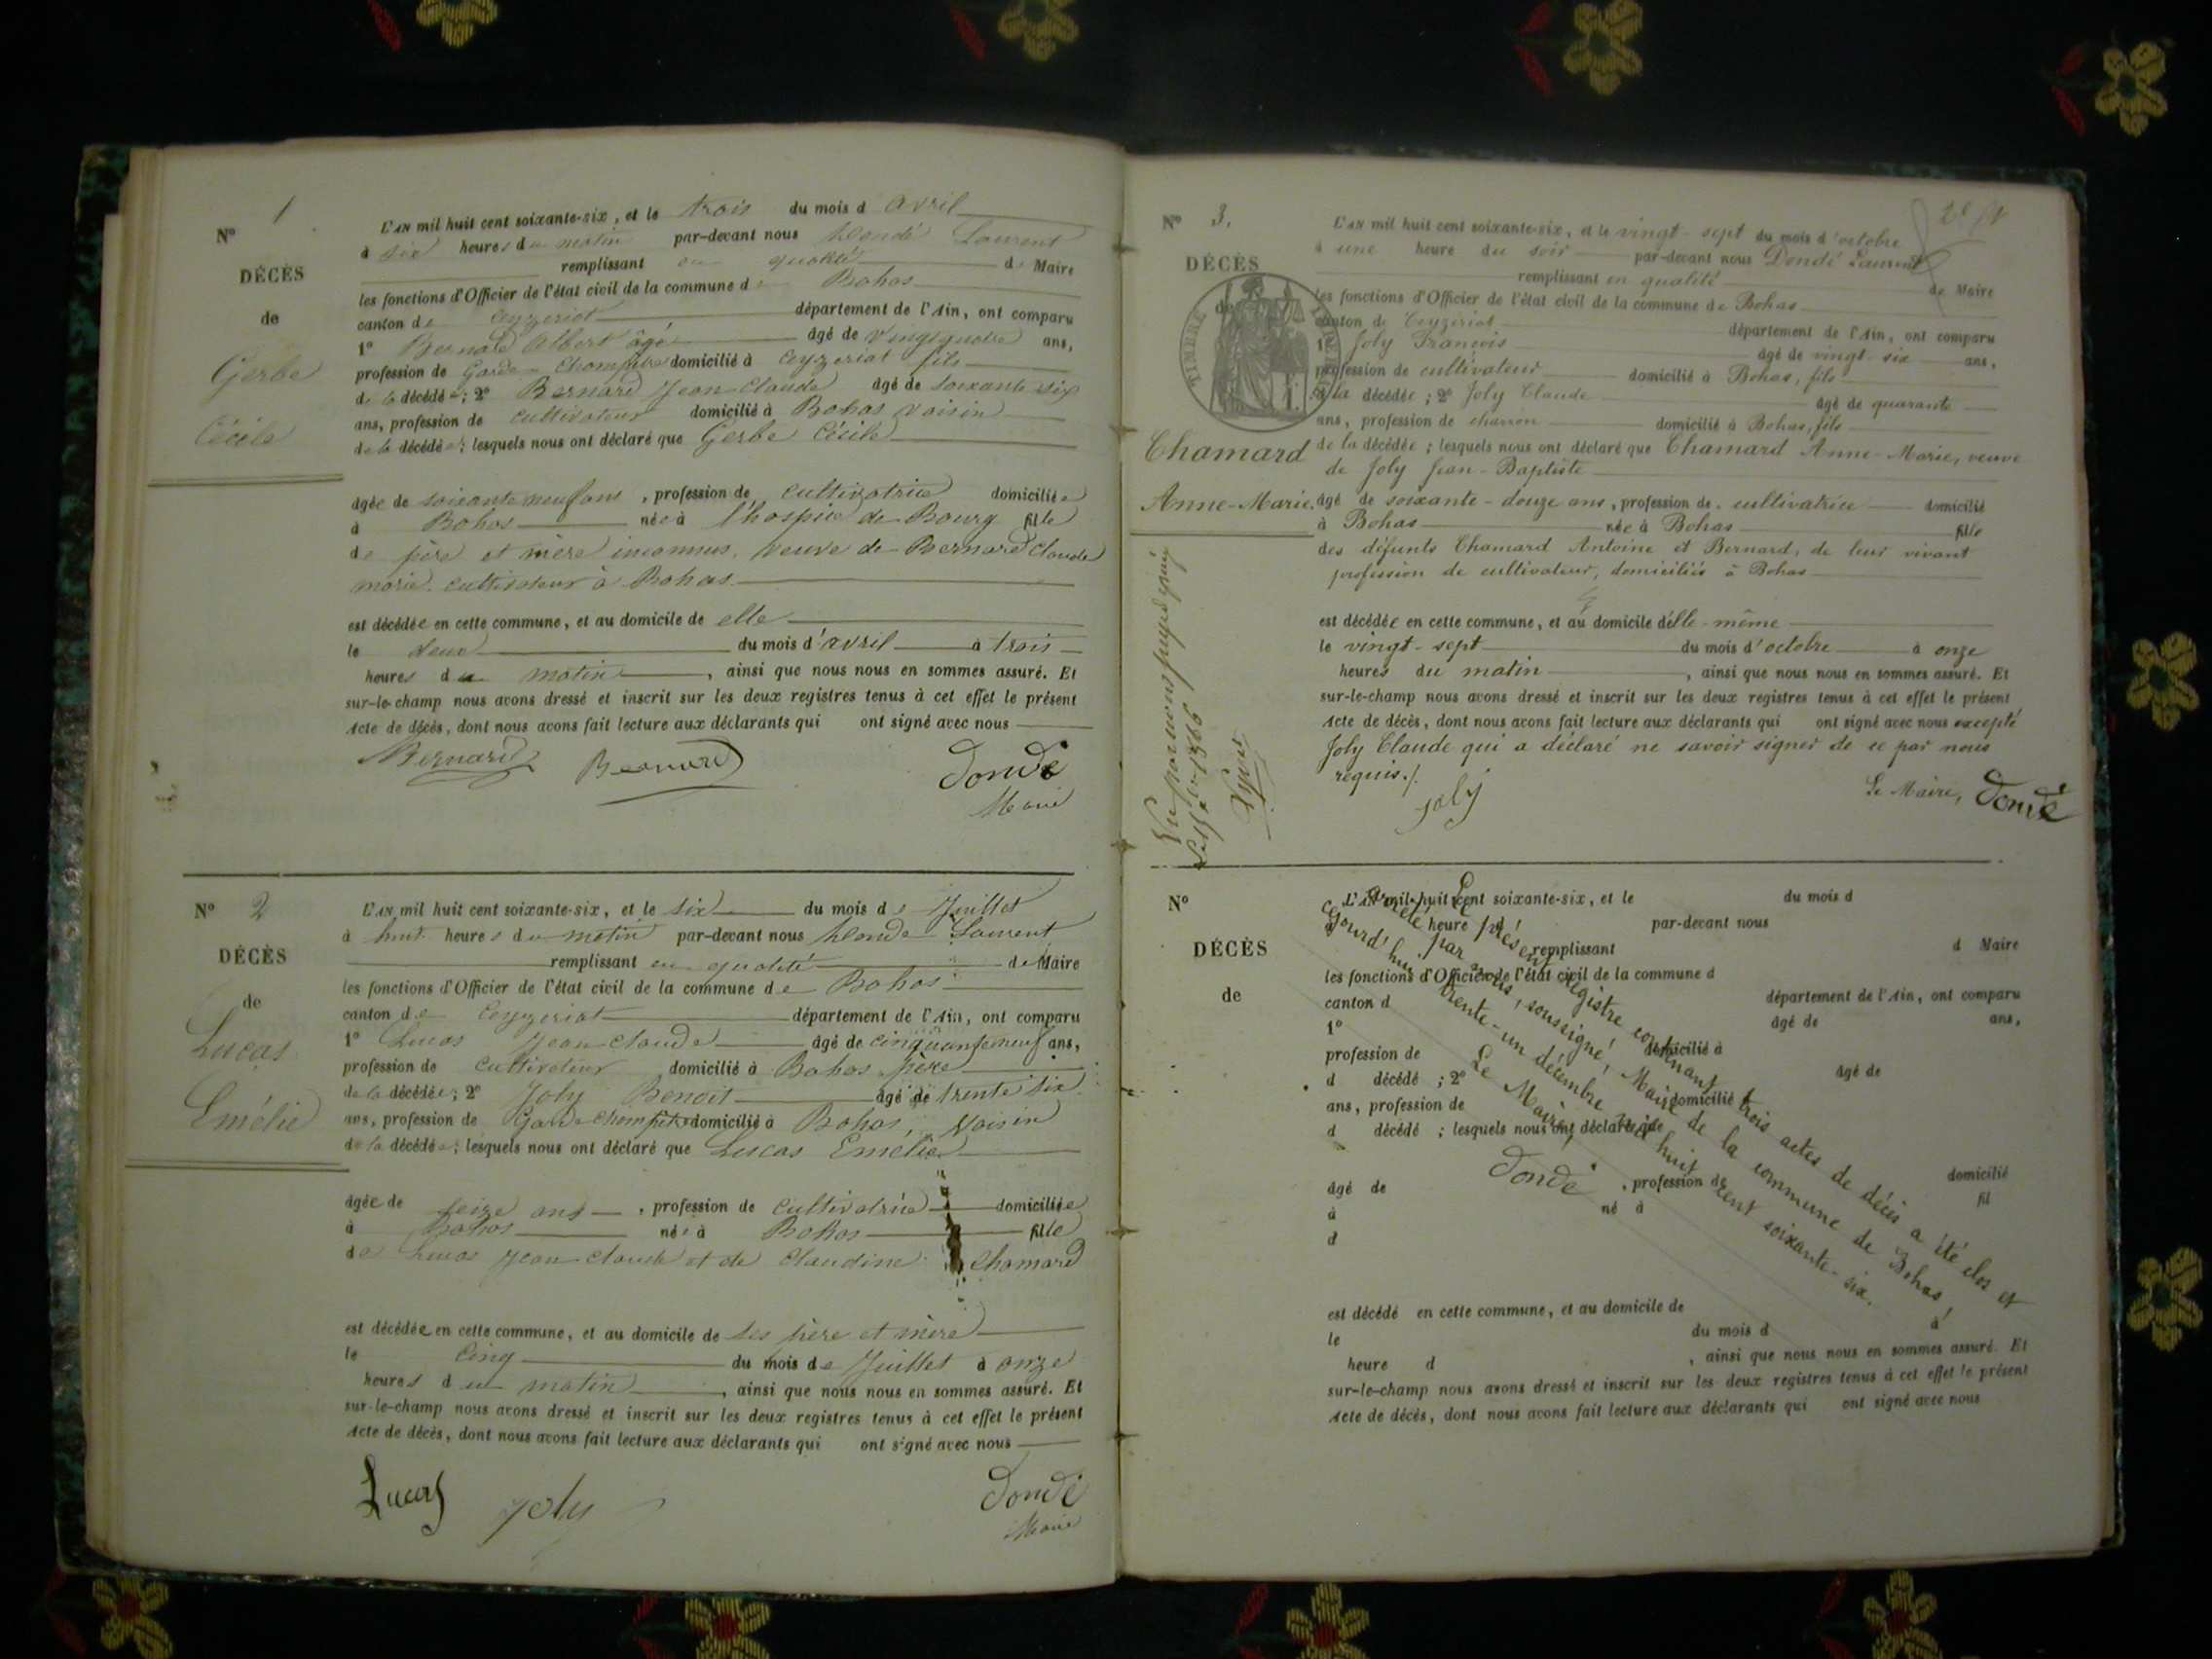 N° 1
DÉCÈS
de
Gerbe
Cécile
L'AN mil huit cent soixante-six, et le trois du mois d avril
à six heures du matin par-devant nous Dondé Laurent
remplissant en qualité de Maire
les fonctions d'Officier de l'état civil de la commune de Bohas
canton de Ceyzeriat département de l'Ain, ont comparu
1° Bernard Albert âgé âgé de vingt quatre ans,
profession de Garde-Champêtre domicilié à Ceyzeriat fils
de la décédée ; 2° Bernard Jean-Claude âgé de soixante six
ans, profession de cultivateur domicilié à Bohas voisin
de la décédée ; lesquels nous ont déclaré que Gerbe Cécile
âgée de soixante neuf ans , profession de cultivatrice domiciliée
à Bohas née à l'hospice de Bourg fille
de père et mère inconnus, veuve de Bernard Claude
marie. cultivateur à Bohas
est décédée en cette commune, et au domicile de elle
le deux du mois d'avril à trois
heures du matin , ainsi que nous nous en sommes assuré. Et
sur-le-champ nous avons dressé et inscrit sur les deux registres tenus à cet effet le présent
Acte de décès, dont nous avons fait lecture aux déclarants qui ont signé avec nous
Bernard Bernard Dondé
Maire
N° 2
DÉCÈS
de
Lucas
Emélie
L'AN mil huit cent soixante-six, et le six du mois de Juillet
à huit heures du matin par-devant nous Dondé Laurent
remplissant en qualité de Maire
les fonctions d'Officier de l'état civil de la commune de Bohas
canton de Ceyzeriat département de l'Ain, ont comparu
1° Lucas Jean Claude âgé de cinquante neuf ans,
profession de cultivateur domicilié à Bohas père
de la décédée ; 2° Joly Benoit âgé de trente six
ans, profession de Garde champêtre domicilié à Bohas, voisin
de la décédée ; lesquels nous ont déclaré que Lucas Emélie
âgée de seize ans , profession de cultivatrice domiciliée
à Bohas née à Bohas fille
de Lucas Jean Claude et de Claudine Chamard
est décédée en cette commune, et au domicile de ses père et mère
le cinq du mois de Juillet à onze
heures du matin , ainsi que nous nous en sommes assuré. Et
sur-le-champ nous avons dressé et inscrit sur les deux registres tenus à cet effet le présent
Acte de décès, dont nous avons fait lecture aux déclarants qui ont signé avec nous
Lucas Joly Dondé
Maire
N° 3.
DÉCÈS
de
TIMBRE
Chamard
Anne-Marie.
L'AN mil huit cent soixante-six, et le vingt-sept du mois d'octobre
à une heure du soir par-devant nous Dondé Laurent
remplissant en qualité de Maire
les fonctions d'Officier de l'état civil de la commune de Bohas
canton de Ceyzeriat département de l'Ain, ont comparu
1° Joly François âgé de vingt-six ans,
profession de cultivateur domicilié à Bohas, fils
de la décédée ; 2° Joly Claude âgé de quarante
ans, profession de charron domicilié à Bohas, fils
de la décédée ; lesquels nous ont déclaré que Chamard Anne-Marie, veuve
de Joly Jean-Baptiste
âgé de soixante-douze ans, profession de cultivatrice domicilié
à Bohas née à Bohas fille
des défunts Chamard Antoine et Bernard, de leur vivant
profession de cultivateur, domiciliés à Bohas
est décédée en cette commune, et au domicile d'elle-même
le vingt-sept du mois d'octobre à onze
heures du matin , ainsi que nous nous en sommes assuré. Et
sur-le-champ nous avons dressé et inscrit sur les deux registres tenus à cet effet le présent
Acte de décès, dont nous avons fait lecture aux déclarants qui ont signé avec nous excepté
Joly Claude qui a déclaré ne savoir signer de ce par nous
requis./.
Joly Le Maire, Dondé
N°
DÉCÈS
de
L'AN mil huit cent soixante-six, et le du mois d
à heure par-devant nous
remplissant d Maire
les fonctions d'Officier de l'état civil de la commune d
canton d département de l'Ain, ont comparu
1° âgé de ans,
profession de domicilié à
d décédé ; 2° âgé de
ans, profession de domicilié à
d décédé ; lesquels nous ont déclaré que
âgé de , profession de domicilié
à né à fil
d
est décédé en cette commune, et au domicile de
le du mois d à
heure d , ainsi que nous nous en sommes assuré. Et
sur-le-champ nous avons dressé et inscrit sur les deux registres tenus à cet effet le présent
Acte de décès, dont nous avons fait lecture aux déclarants qui ont signé avec nous
Le présent registre contenant trois actes de décès a été clos et
arrêté par nous, soussigné, Maire de la commune de Bohas,
cejourd'hui trente-un décembre mil huit cent soixante-six.
Le Maire,
Dondé